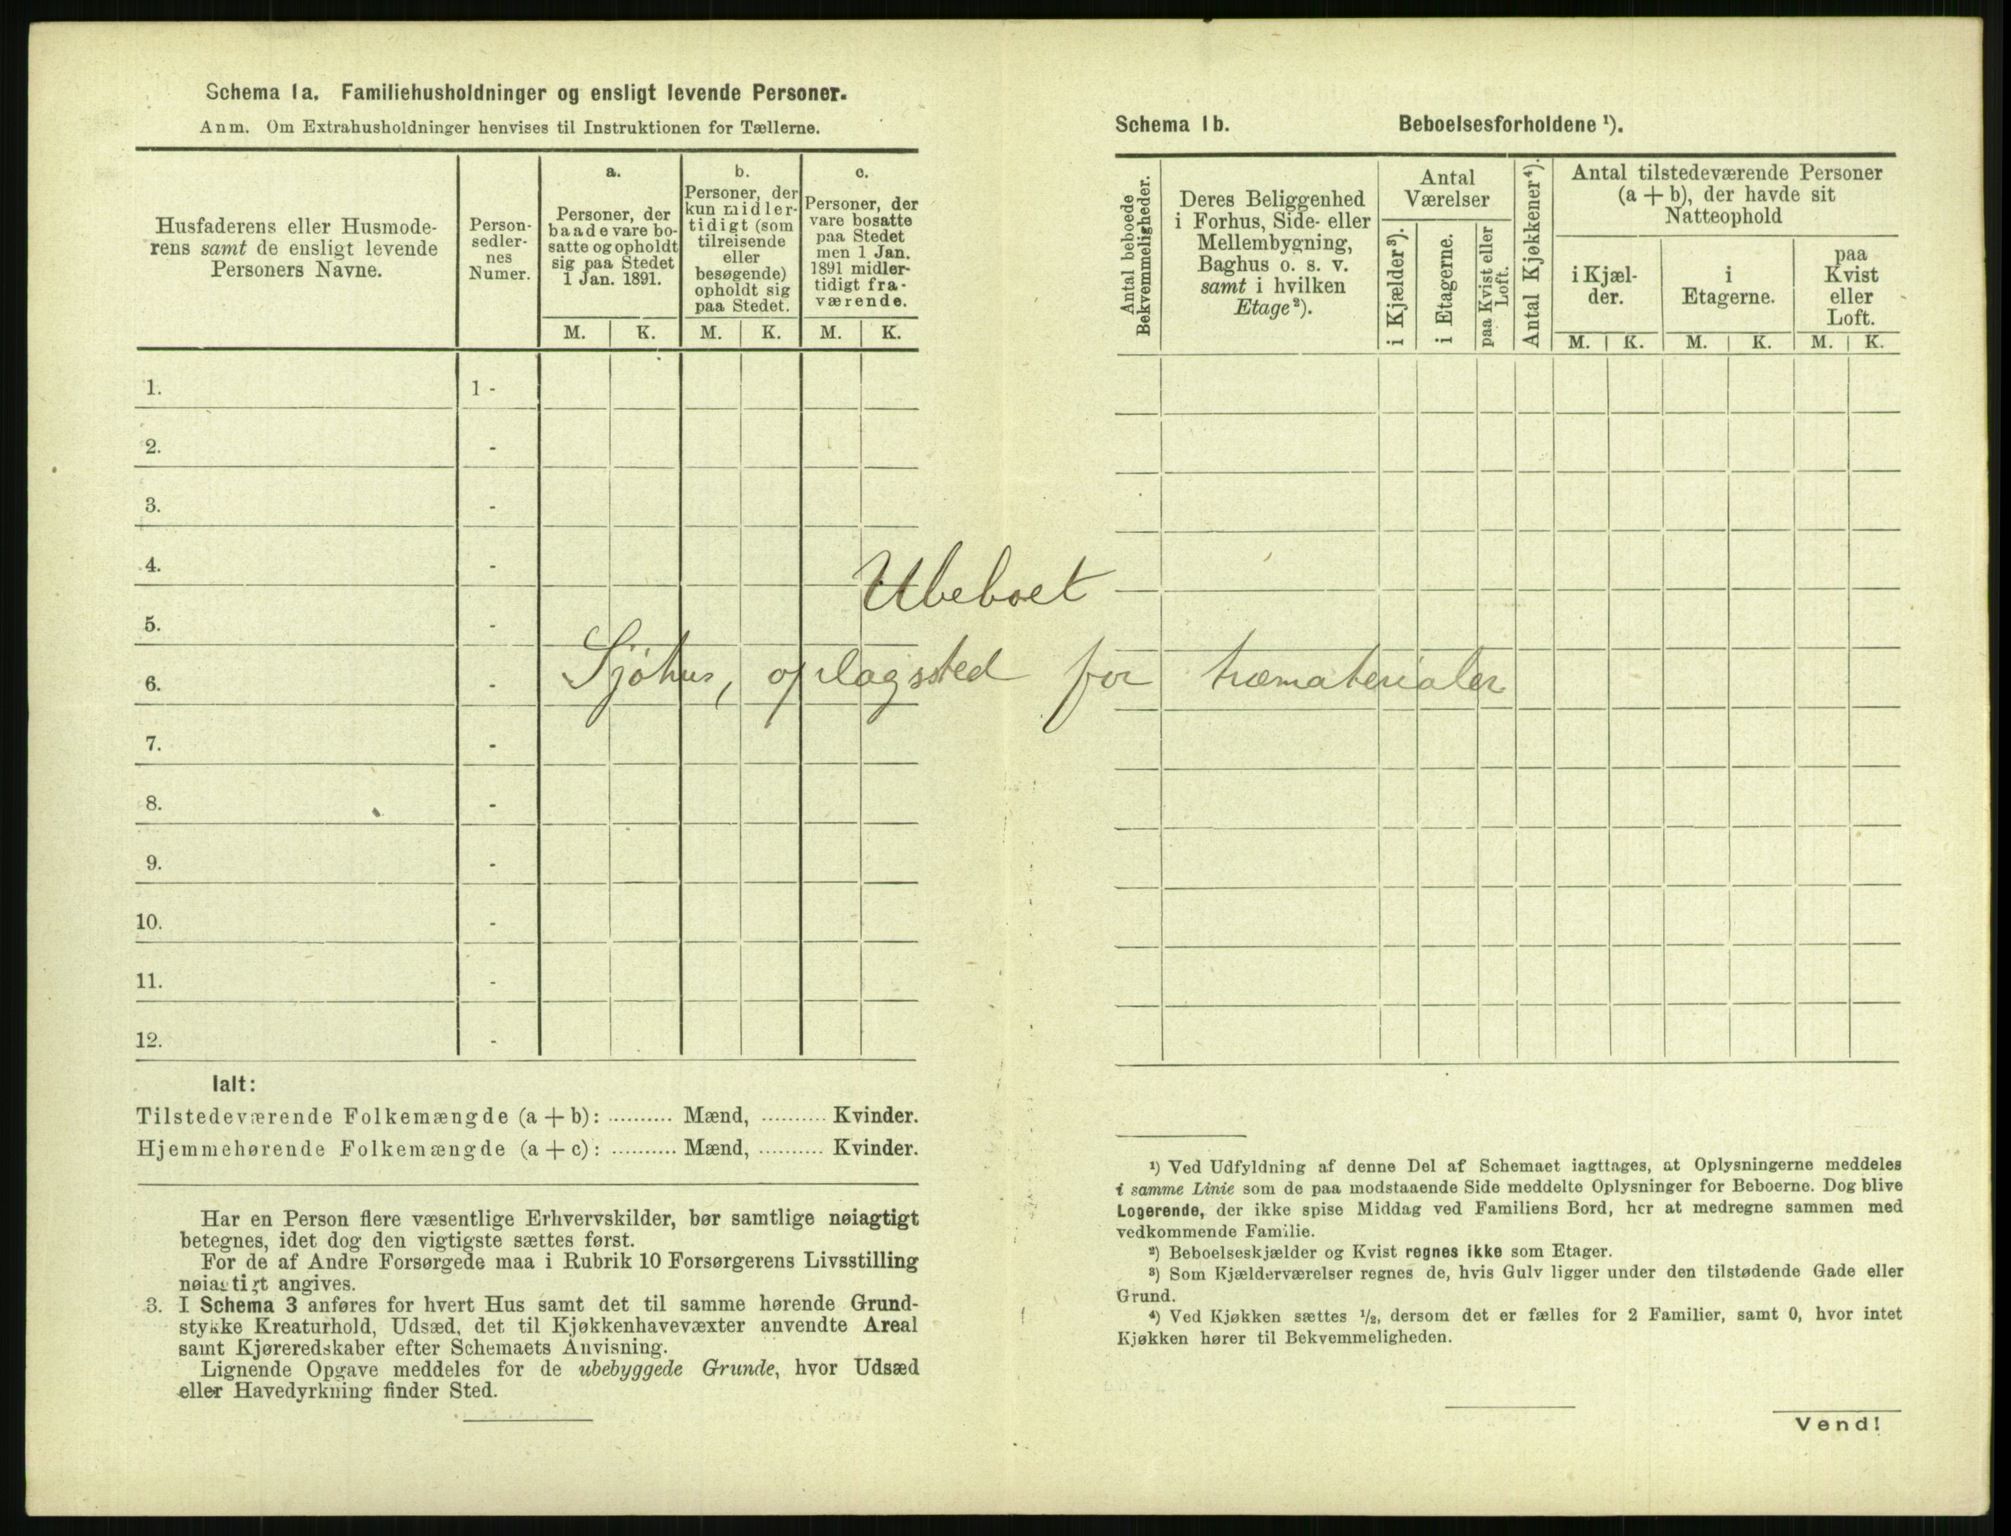 Schema 1a. Familiehusholdninger og ensligt levende Personer.
Anm. Om Extrahusholdninger henvises til Instruktionen for Tællerne.
Husfaderens eller Husmode-
rens samt de ensligt levende
Personers Navne.
Person-
sedler-
nes
Numer.
a.
Personer, der
baade vare bo-
satte og opholdt
sig paa Stedet
1 Jan. 1891.
b.
Personer, der
kun midler-
tidigt (som
tilreisende
eller
besøgende)
opholdt sig
paa Stedet.
c.
Personer, der
vare bosatte
paa Stedet
men 1 Jan.
1891 midler-
tidigt fra-
værende.
M. K. M. K. M. K.
1. 1 -
2. -
3. -
4. -
5. -
6. -
7. -
8. -
9. -
10. -
11. -
12. -
Ubeboet
Sjøhus, oplagssted for træmaterialer
Ialt:
Tilstedeværende Folkemængde (a + b): .......... Mænd, .......... Kvinder.
Hjemmehørende Folkemængde (a + c): .......... Mænd, .......... Kvinder.
Har en Person flere væsentlige Erhvervskilder, bør samtlige nøiagtigt
betegnes, idet dog den vigtigste sættes først.
For de af Andre Forsørgede maa i Rubrik 10 Forsørgerens Livsstilling
nøiagtigt angives.
3. I Schema 3 anføres for hvert Hus samt det til samme hørende Grund-
stykke Kreaturhold, Udsæd, det til Kjøkkenhavevæxter anvendte Areal
samt Kjøreredskaber efter Schemaets Anvisning.
Lignende Opgave meddeles for de ubebyggede Grunde, hvor Udsæd
eller Havedyrkning finder Sted.
Schema 1b. Beboelsesforholdene ¹).
Antal beboede
Bekvemmeligheder.
Deres Beliggenhed
i Forhus, Side- eller
Mellembygning,
Baghus o. s. v.
samt i hvilken
Etage ²).
Antal
Værelser
i Kjælder ³).
i Etagerne.
paa Kvist eller
Loft.
Antal Kjøkkener ⁴).
Antal tilstedeværende Personer
(a + b), der havde sit
Natteophold
i Kjæl-
der.
i
Etagerne.
paa
Kvist
eller
Loft.
M. K. M. K. M. K.
¹) Ved Udfyldning af denne Del af Schemaet iagttages, at Oplysningerne meddeles
i samme Linie som de paa modstaaende Side meddelte Oplysninger for Beboerne. Dog blive
Logerende, der ikke spise Middag ved Familiens Bord, her at medregne sammen med
vedkommende Familie.
²) Beboelseskjælder og Kvist regnes ikke som Etager.
³) Som Kjælderværelser regnes de, hvis Gulv ligger under den tilstødende Gade eller
Grund.
⁴) Ved Kjøkken sættes ½, dersom det er fælles for 2 Familier, samt 0, hvor intet
Kjøkken hører til Bekvemmeligheden.
Vend!